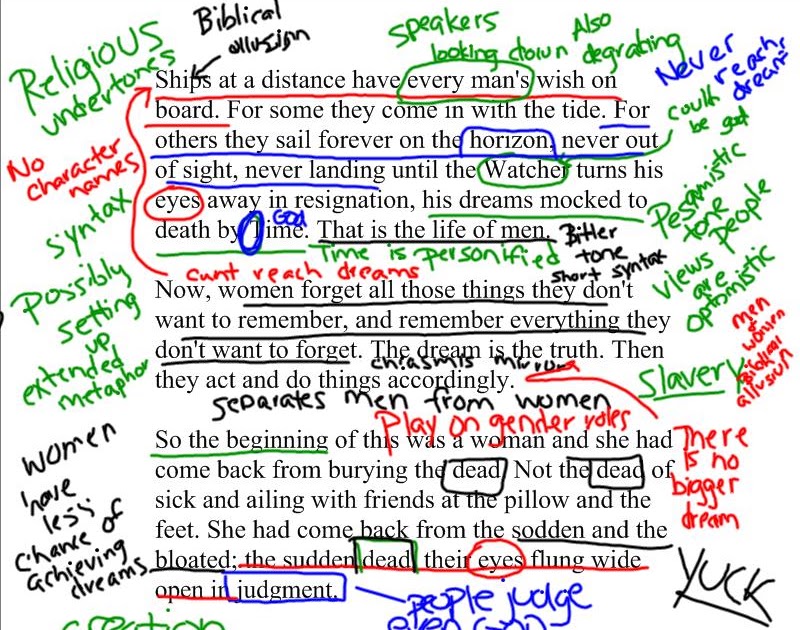 Biblical
allusion
Religious
undertones
speakers
looking down
Also
degrating
Never
reach
dream
could
be god
No
character
names
syntax
Possibly
setting
up
extended
metaphor
Ships at a distance have every man's wish on
board. For some they come in with the tide. For
others they sail forever on the horizon, never out
of sight, never landing until the Watcher turns his
eyes away in resignation, his dreams mocked to
God
death by Time. That is the life of men.
Bitter
tone
short syntax
Time is personified
cant reach dreams
Pesamistic
tone
people
views
are
optomistic
Now, women forget all those things they don't
want to remember, and remember everything they
don't want to forget. The dream is the truth. Then
chiasmis mirror
they act and do things accordingly.
separates men from women
Play on gender roles
men
&
women
Biblical
allusion
Slavery
There
is no
bigger
dream
So the beginning of this was a woman and she had
come back from burying the dead. Not the dead of
sick and ailing with friends at the pillow and the
feet. She had come back from the sodden and the
bloated; the sudden dead, their eyes flung wide
open in judgment.
women
have
less
chance of
achieving
dreams
people judge
even
YUCK
creation